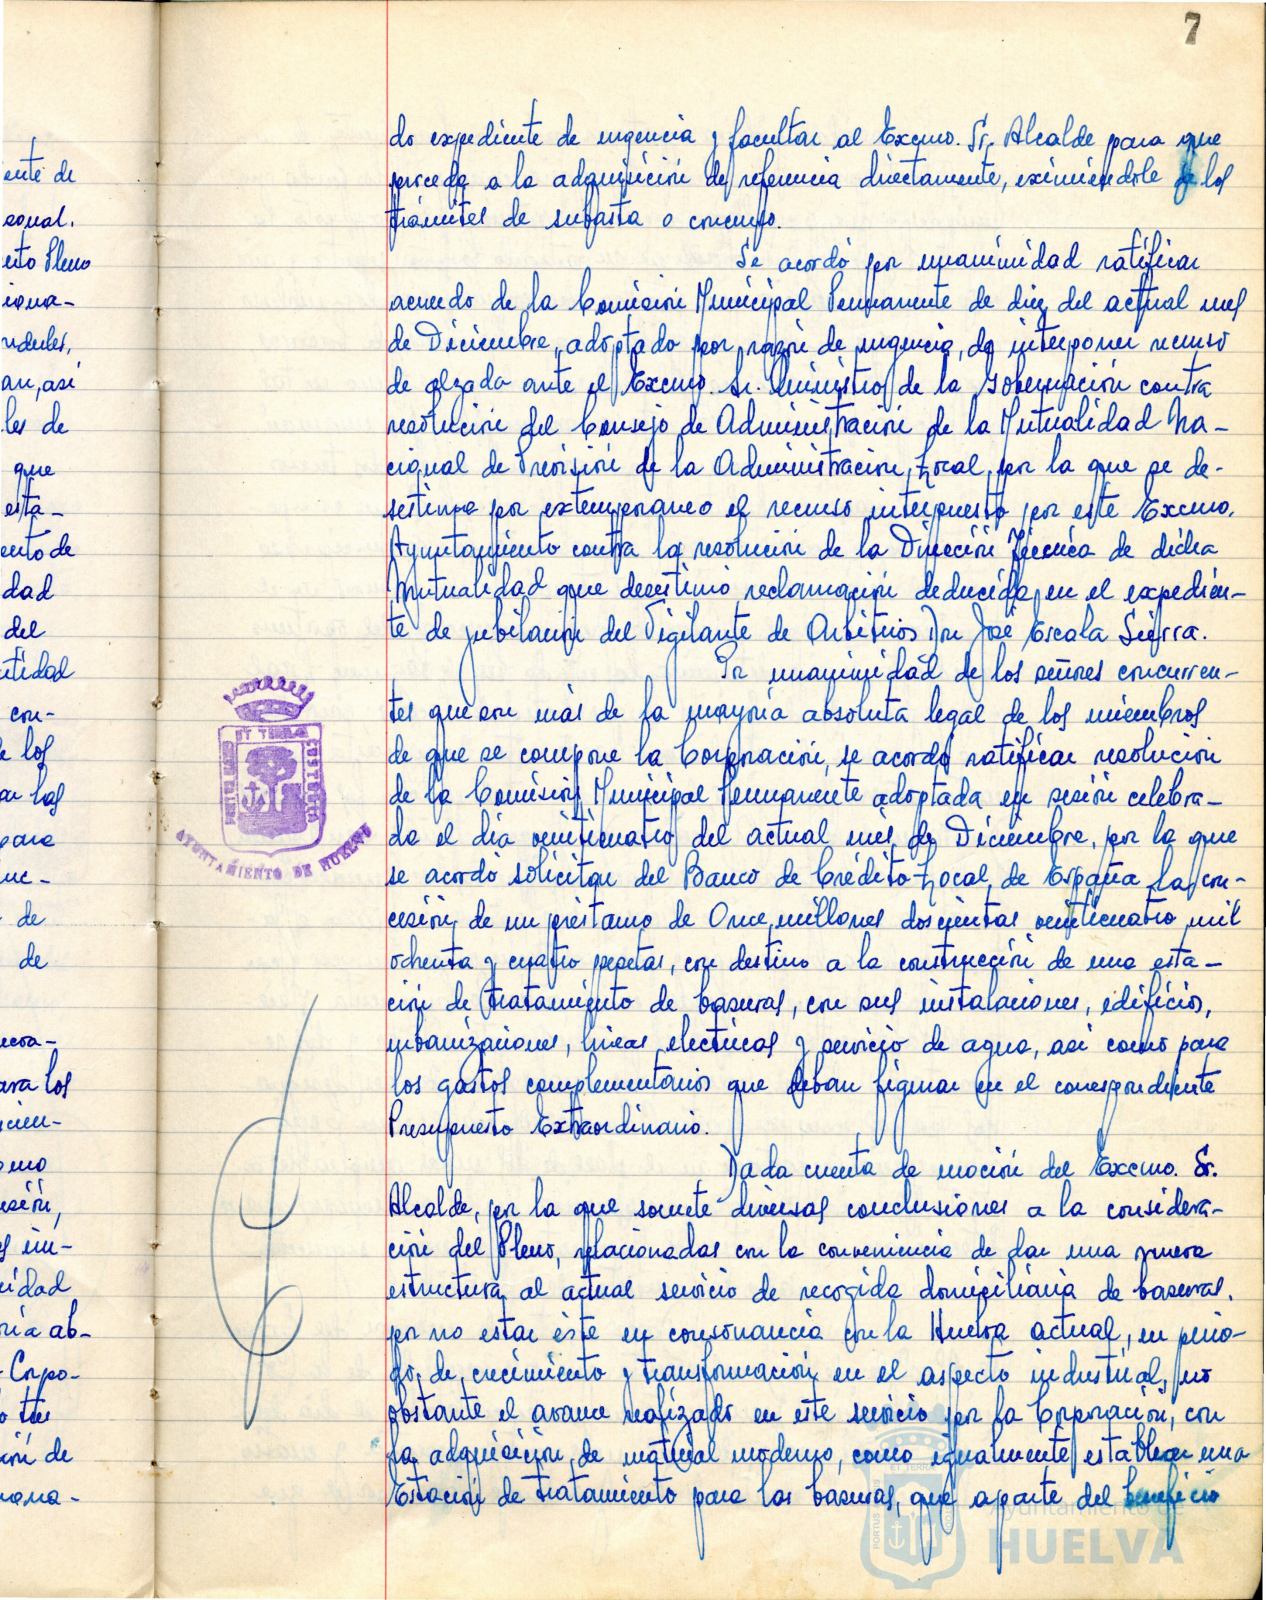 7
do expediente de urgencia y facultar al Excmo. Sr. Alcalde para que
proceda a la adquisición de referencia directamente, eximiéndole de los
trámites de subasta o concurso.
Se acordó por unanimidad ratificar
acuerdo de la Comisión Municipal Permanente de diez del actual mes
de Diciembre, adoptado por razón de urgencia, de interponer recurso
de alzada ante el Excmo. Sr. Ministro de la Gobernación contra
resolución del Consejo de Administración de la Mutualidad Na-
cional de Previsión de la Administración Local, por la que se de-
sestima por extemporaneo el recurso interpuesto por este Excmo.
Ayuntamiento contra la resolución de la Dirección Técnica de dicha
Mutualidad que desestimó reclamación deducida en el expedien-
te de jubilación del Vigilante de Arbitrios Don José Escala Sierra.
Por unanimidad de los señores concurren-
tes que son más de la mayoría absoluta legal de los miembros
de que se compone la Corporación, se acordó ratificar resolución
de la Comisión Municipal Permanente adoptada en sesión celebra-
da el día veinticuatro del actual mes de Diciembre, por la que
se acordó solicitar del Banco de Crédito Local de España la con-
cesión de un préstamo de Once millones doscientas veinticuatro mil
ochenta y cuatro pesetas, con destino a la construcción de una esta-
ción de tratamiento de basuras, con sus instalaciones, edificios,
urbanizaciones, lineas electricas y servicio de agua, asi como para
los gastos complementarios que deban figurar en el correspondiente
Presupuesto Extraordinario.
Dada cuenta de moción del Excmo. Sr.
Alcalde, por la que somete diversas conclusiones a la considera-
ción del Pleno, relacionadas con la conveniencia de dar una nueva
estructura al actual servicio de recogida domiciliaria de basuras,
por no estar éste en consonancia con la Huelva actual, en perio-
do de crecimiento y transformación en el aspecto industrial, no
obstante el avance realizado en este servicio por la Corporación, con
la adquisición de material moderno, como igualmente establecer una
Estación de tratamiento para las basuras, que aparte del beneficio
ente de
Pleno
an, asi
les de
que
esta-
ento de
dad
del
con-
e los
para
de
de
ara los
Corpo-
ET TERRAE
CUSTODIA
AYUNTAMIENTO DE HUELVA
Ayuntamiento de
HUELVA